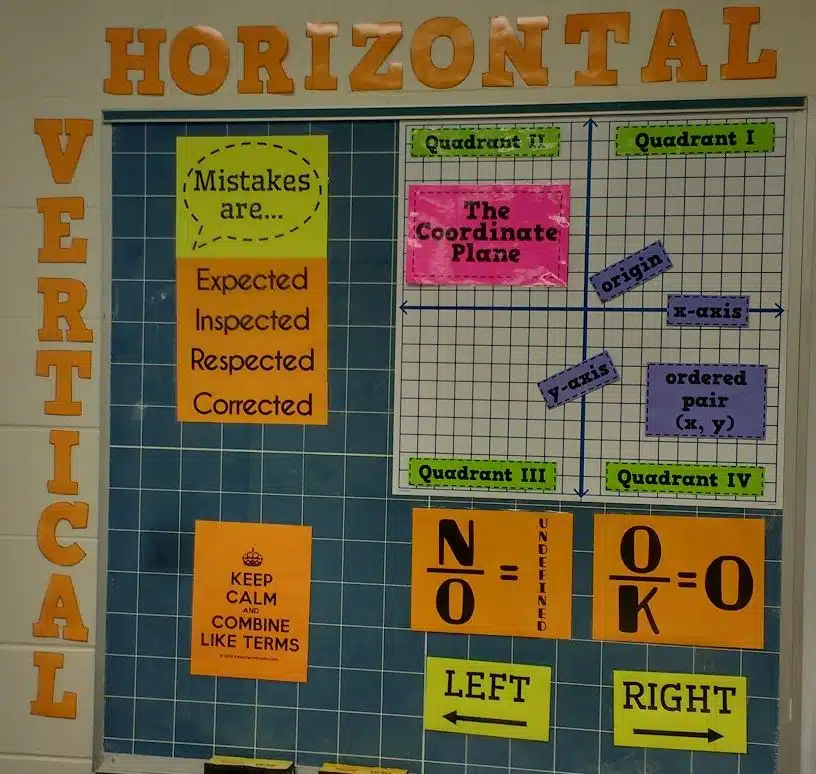 HORIZONTAL
VERTICAL
Mistakes
are...
Expected
Inspected
Respected
Corrected
Quadrant II
Quadrant I
The
Coordinate
Plane
origin
x-axis
y-axis
ordered
pair
(x, y)
Quadrant III
Quadrant IV
KEEP
CALM
AND
COMBINE
LIKE TERMS
N
O
=
UNDEFINED
O
K
=
O
LEFT
RIGHT